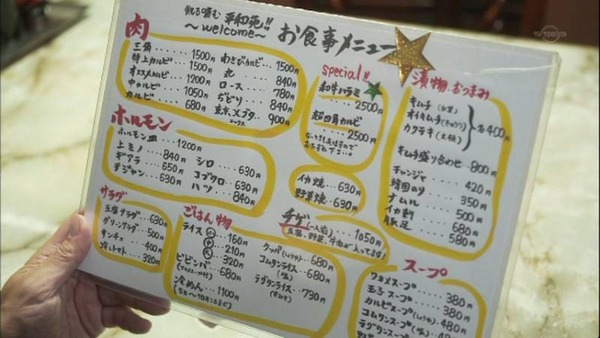 平和苑!!
~welcome~
お食事メニュー
肉
三角 ..... 1500円
特上カルビ ... 1500円
オススメカルビ ... 1200円
中カルビ ..... 1050円
カルビ ..... 680円
わさびカルビ ... 1500円
ロース ..... 780円
... 840円
... 840円
... 900円
special!!
和牛ハラミ
2500円
超四角カルビ
2500円
漬物、おつまみ
キムチ
オイキムチ
カクテキ
各400円
キムチ盛り合わせ ... 800円
チャンジャ ..... 420円
韓国のり ..... 350円
ナムル ..... 500円
イカ刺 ..... 680円
豚足 ..... 580円
ホルモン
ホルモン皿 ... 1200円
上ミノ ..... 840円
ギアラ ..... 650円
テッチャン ... 630円
シロ ..... 630円
コブクロ ... 630円
ハツ ..... 840円
イカ焼 ... 630円
野菜焼 ... 630円
サラダ
豆腐サラダ ... 630円
グリーンサラダ ... 500円
サンチュ ..... 400円
冷しトマト ... 320円
ごはん物
ライス 大 160円
中 210円
小 320円
ビビンバ ... 680円
冷めん ... 1100円
クッパ(しょうゆ) ... 680円
コムタンライス(塩) ... 680円
テグタンライス ... 730円
チゲ(一人鍋) ... 1050円
スープ
ワカメスープ ..... 380円
玉子スープ ..... 380円
カルビスープ(しょうゆ) ... 480円
コムタンスープ(塩) ... 480円
テグタンスープ
TV TOKYO